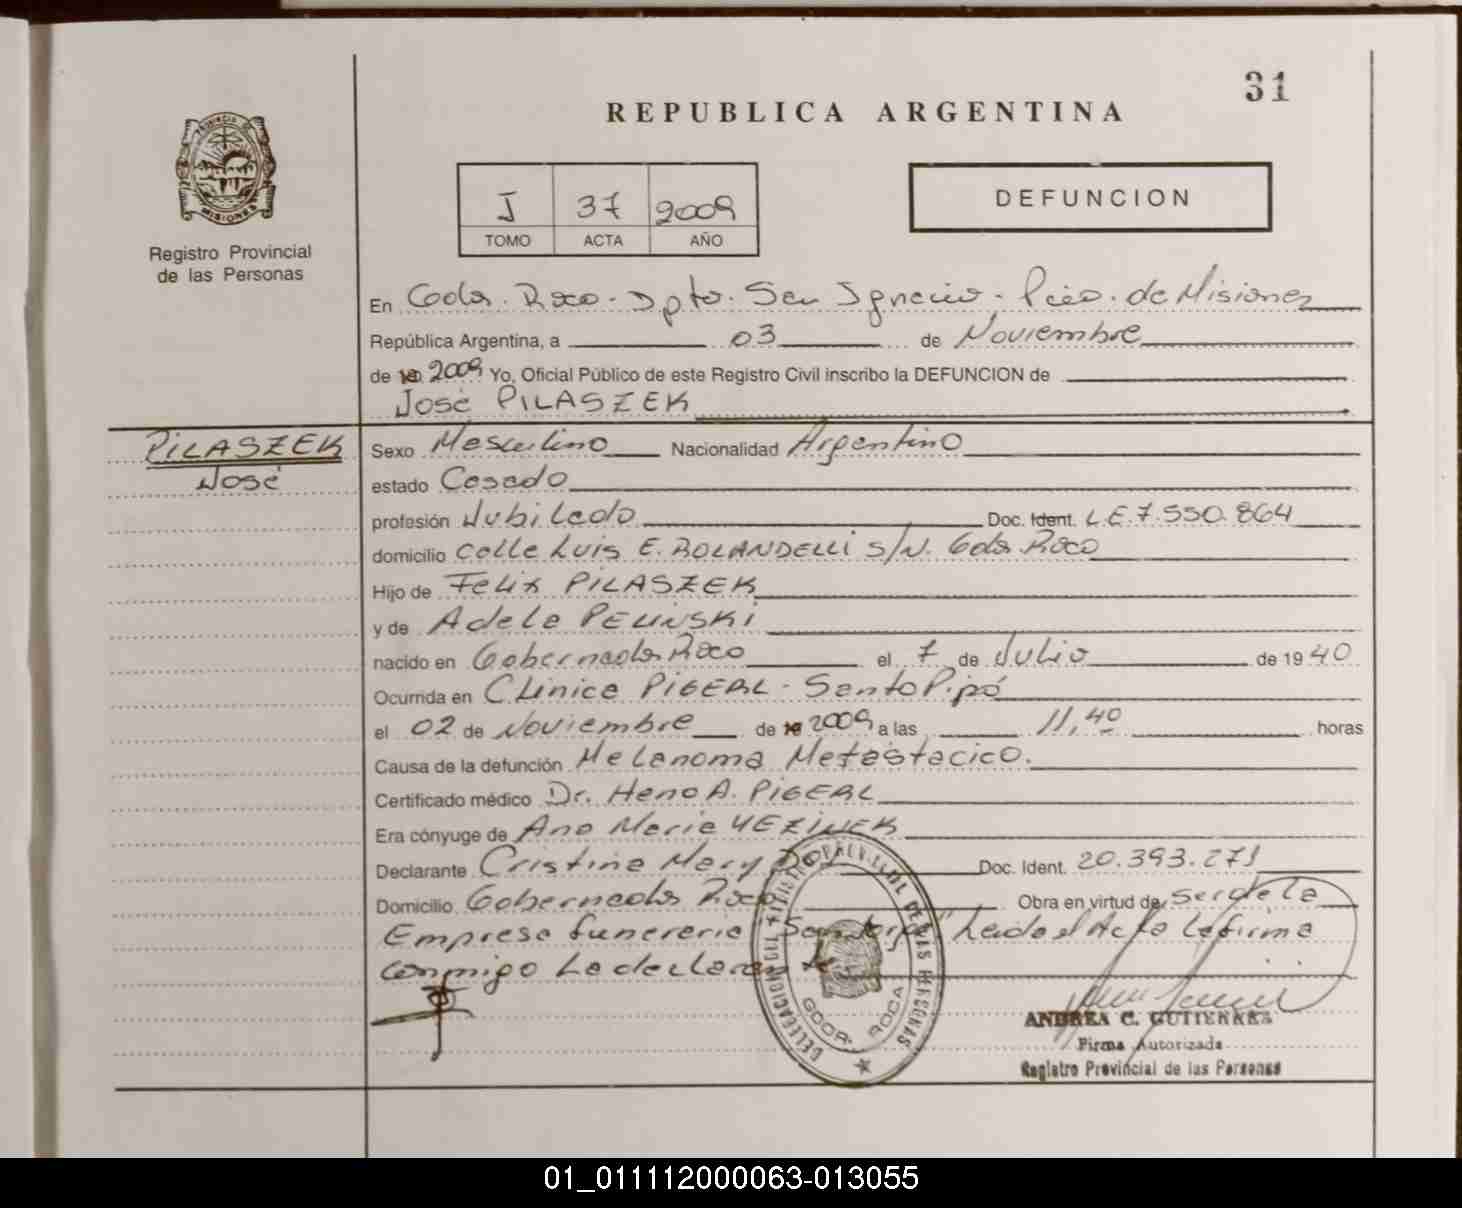 31
REPUBLICA ARGENTINA
PROVINCIA DE MISIONES
Registro Provincial
de las Personas
J 37 2009
TOMO ACTA AÑO
DEFUNCION
En Gdor. Roca - Dpto. San Ignacio - Pcia. de Misiones
República Argentina, a 03 de Noviembre
de 19 2009 Yo, Oficial Público de este Registro Civil inscribo la DEFUNCION de
José PILASZEK
PILASZEK
José
Sexo Masculino Nacionalidad Argentino
estado Casado
profesión Jubilado Doc. Ident. L.E.7.550.864
domicilio calle Luis E. ROLANDELLI S/N. Gdor Roca
Hijo de Felix PILASZEK
y de Adela PELINSKI
nacido en Gobernador Roca el 7 de Julio de 1940
Ocurrida en Clinica PIGERL - Santo Pipó
el 02 de Noviembre de 19 2009 a las 11,40 horas
Causa de la defunción Melanoma Metastacico.
Certificado médico Dr. Heno A. PIGERL
Era cónyuge de Ana Maria YEZINEK
Declarante Cristina Mary Doc. Ident. 20.393.271
Domicilio Gobernador Roca Obra en virtud de ser de la
Empresa funeraria "San Jorge" Leida el Acta la firma
conmigo la declarante
DELEGACION DEL REGISTRO PROVINCIAL DE LAS PERSONAS
GDOR. ROCA
ANDREA C. GUTIERREZ
Firma Autorizada
Registro Provincial de las Personas
01_011112000063-013055